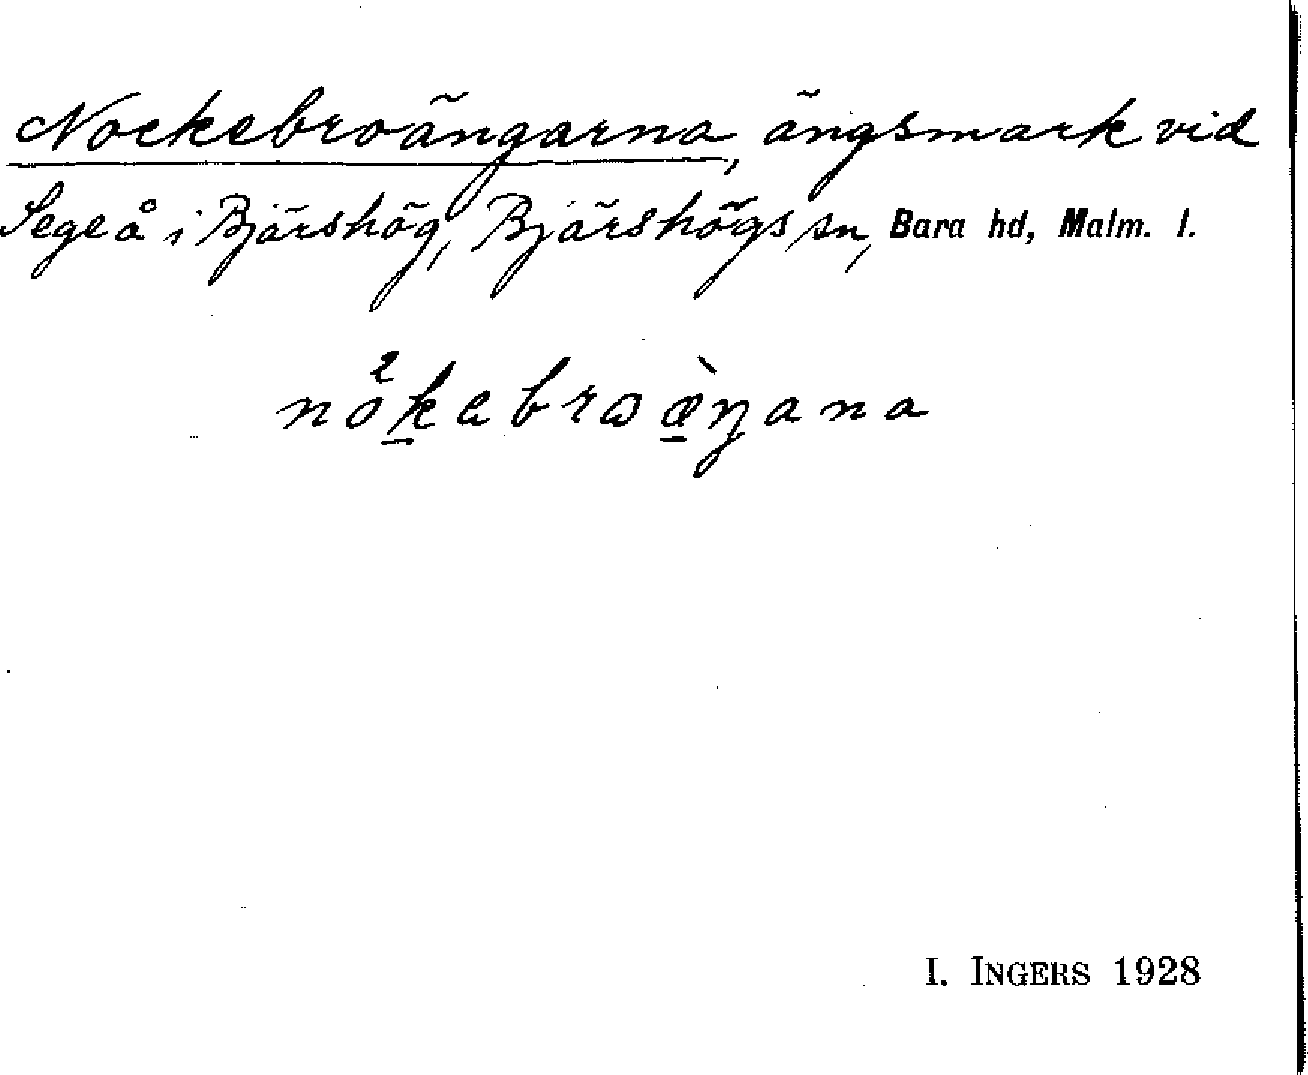 Nockebroängarna, ängsmark vid
Segeå i Bjärshög, Bjärshögs sn, Bara hd, Malm. l.
nò̊k̲ebrωæ̲̀ŋana
I. INGERS 1928